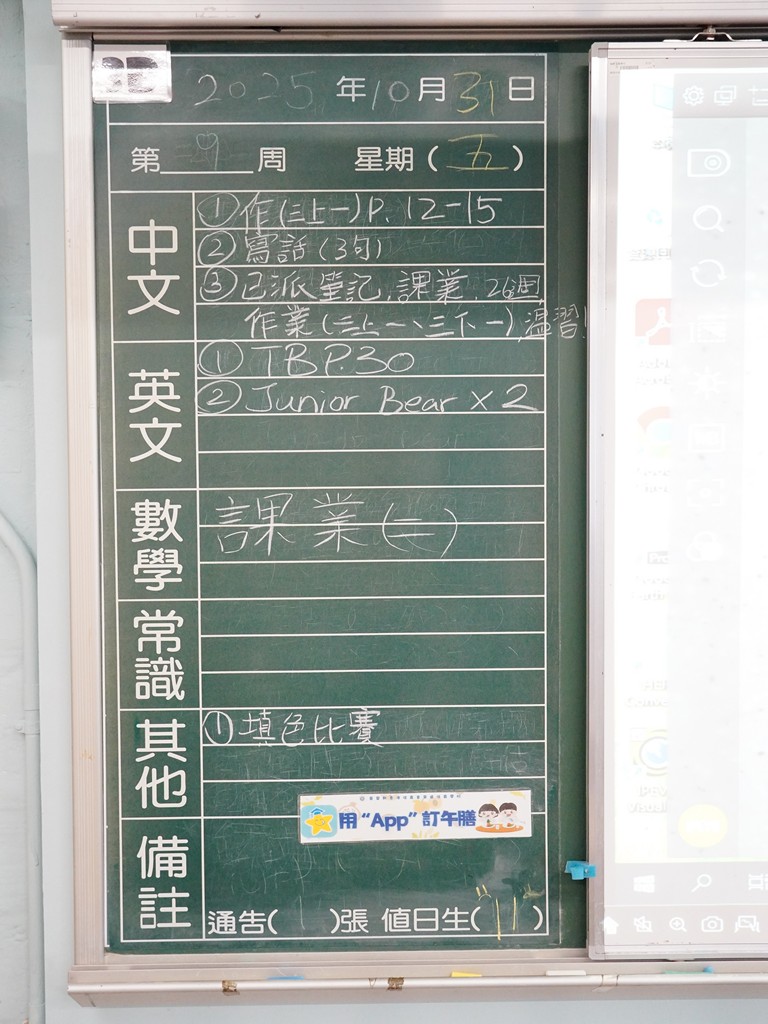 2025年10月31日
第9周 星期(五)
中文
①作(三上一)P.12-15
②寫話(3句)
③已派筆記,課業,26週
作業(三上一、三下一),溫習!
英文
①TBP.30
②Junior Bear x 2
數學
課業(二)
常識
其他
①填色比賽
用“App”訂午膳
備註
通告(1)張 值日生("11")